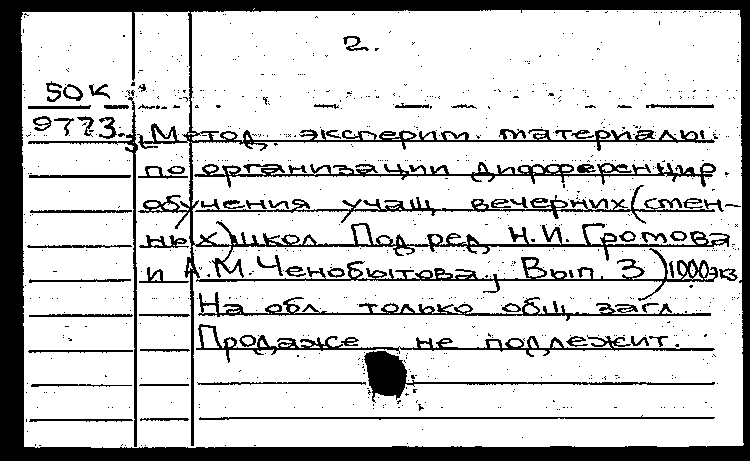 2.
50к
9773. (Метод. эксперим. материалы
по организации дифференцир.
обучения учащ. вечерних (смен-
ных) школ. Под ред. Н.И. Громова
и А.М. Ченобытова., Вып. 3) 1000 экз.
На обл. только общ. загл.
Продаже не подлежит.